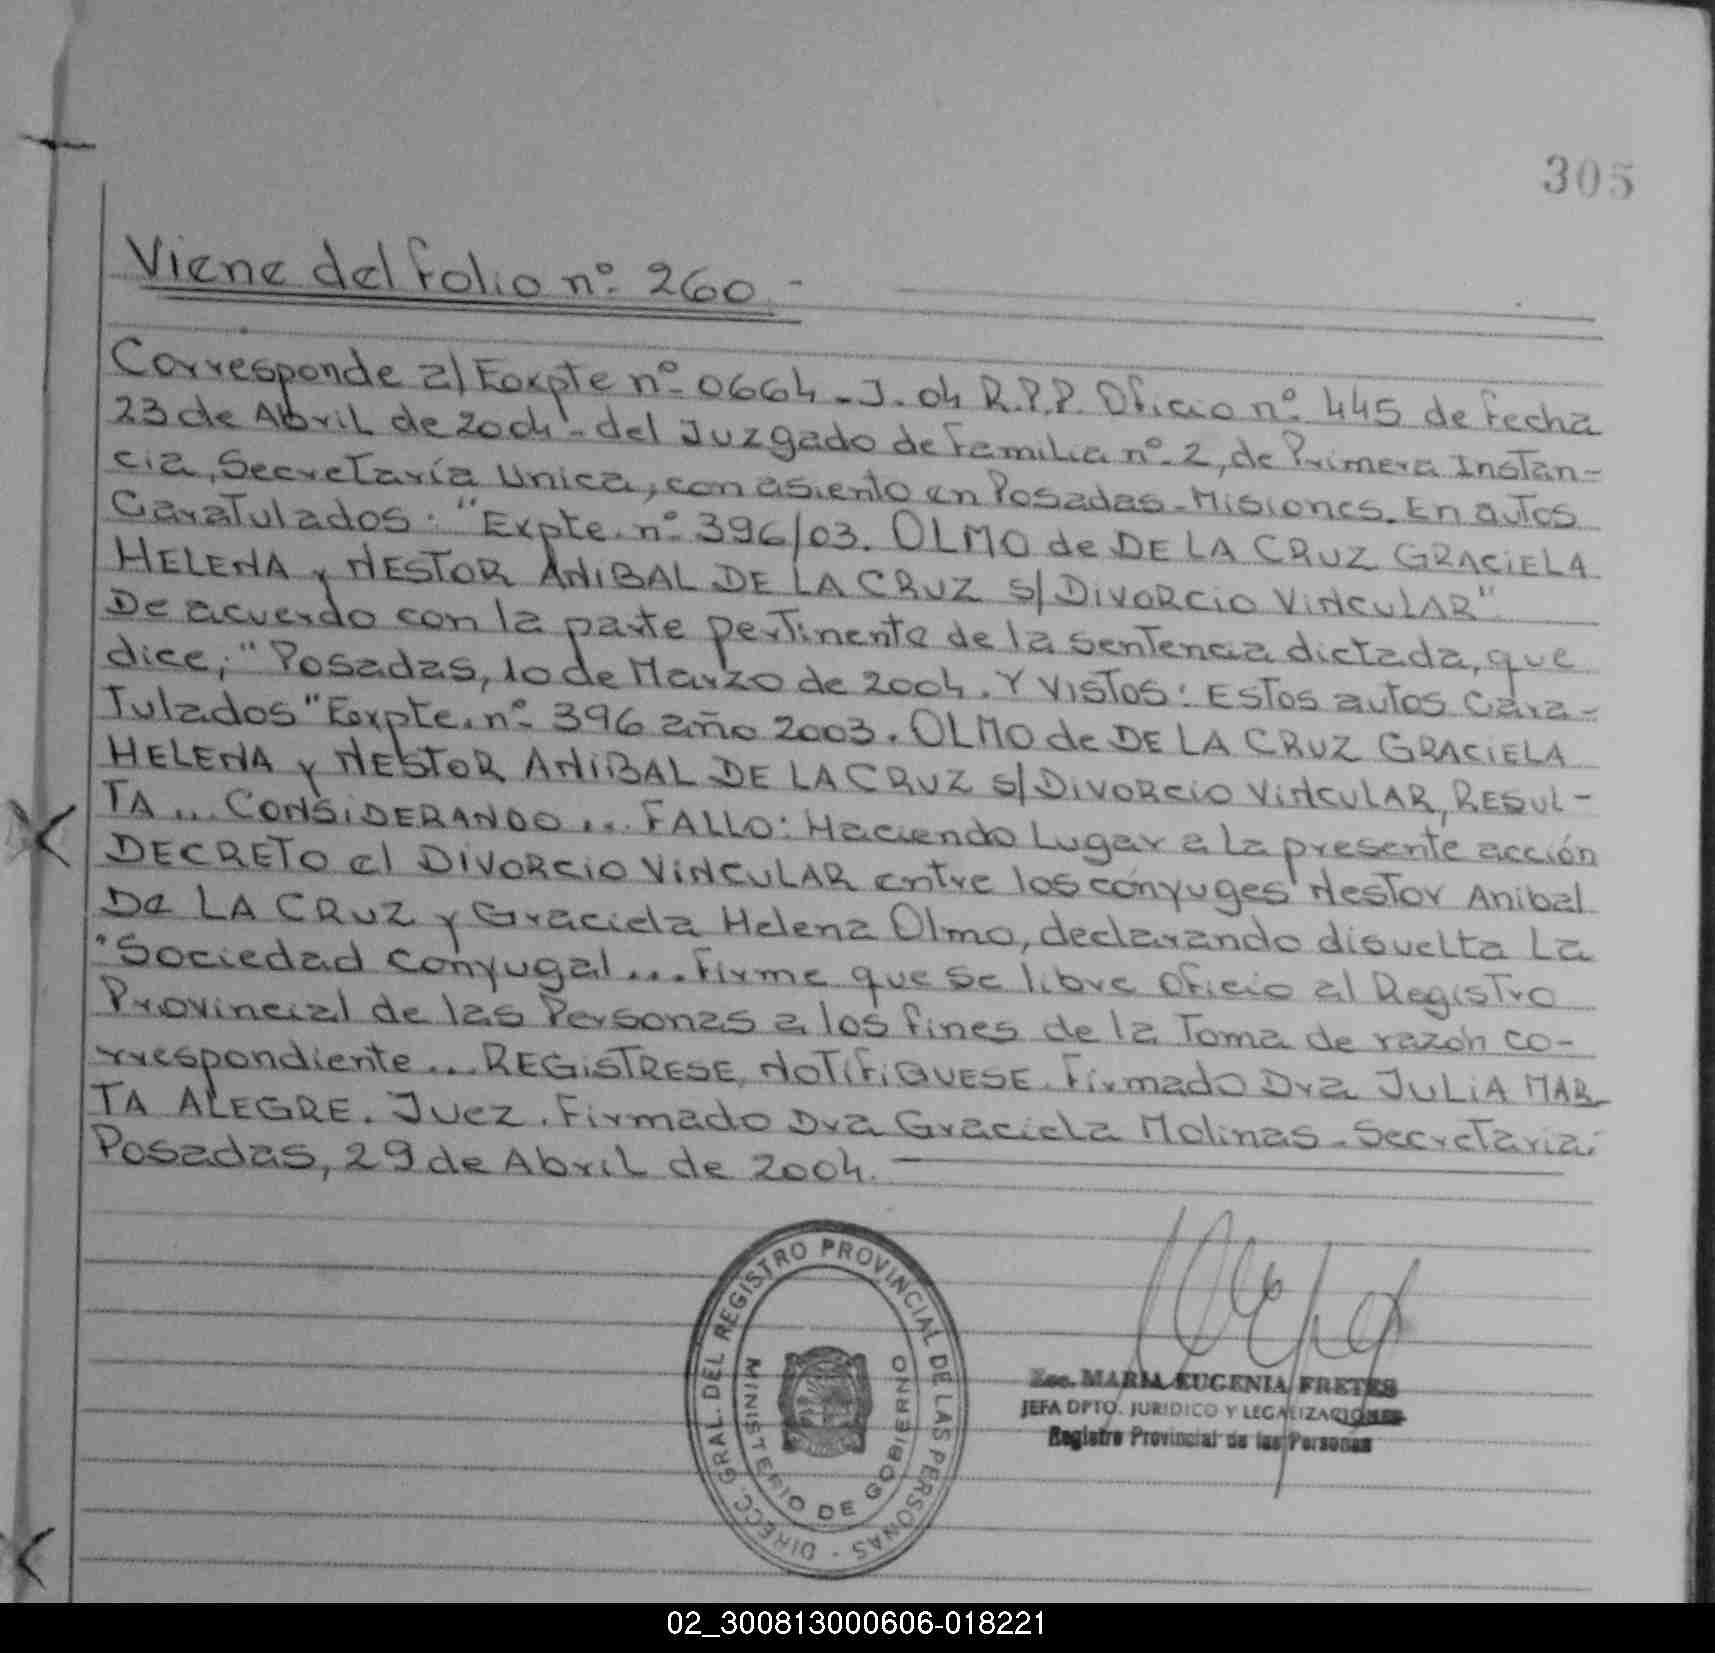 305
Viene del folio nº 260.-
Corresponde al Eoxpte nº 0664-J-04 R.P.P. Oficio nº 445 de fecha
23 de Abril de 2004- del Juzgado de Familia nº 2, de Primera Instan-
cia, Secretaría Unica, con asiento en Posadas-Misiones. En autos
Caratulados: "Expte. nº 396/03. OLMO de DE LA CRUZ GRACIELA
HELENA y NESTOR ANIBAL DE LA CRUZ s/DIVORCIO VINCULAR"
De acuerdo con la parte pertinente de la sentencia dictada, que
dice; "Posadas, 10 de Marzo de 2004. Y VISTOS: Estos autos Cara-
tulados "Eoxpte. nº 396 año 2003. OLMO de DE LA CRUZ GRACIELA
HELENA y NESTOR ANIBAL DE LA CRUZ s/DIVORCIO VINCULAR, RESUL-
TA... CONSIDERANDO... FALLO: Haciendo Lugar a La presente acción
DECRETO el DIVORCIO VINCULAR entre los cónyuges Nestor Anibal
De LA CRUZ y Graciela Helena Olmo, declarando disuelta La
"Sociedad Conyugal... Firme que se libre Oficio al Registro
Provincial de las Personas a los fines de la Toma de razón co-
rrespondiente... REGISTRESE, NOTIFIQUESE. Firmado Dra JULIA MAR
TA ALEGRE. Juez. Firmado Dra Graciela Molinas-Secretaria.
Posadas, 29 de Abril de 2004.
DIRECC. GRAL. DEL REGISTRO PROVINCIAL DE LAS PERSONAS -
MINISTERIO DE GOBIERNO
Esc. MARIA EUGENIA FRETES
JEFA DPTO. JURIDICO Y LEGALIZACIONES
Registro Provincial de las Personas
02_300813000606-018221